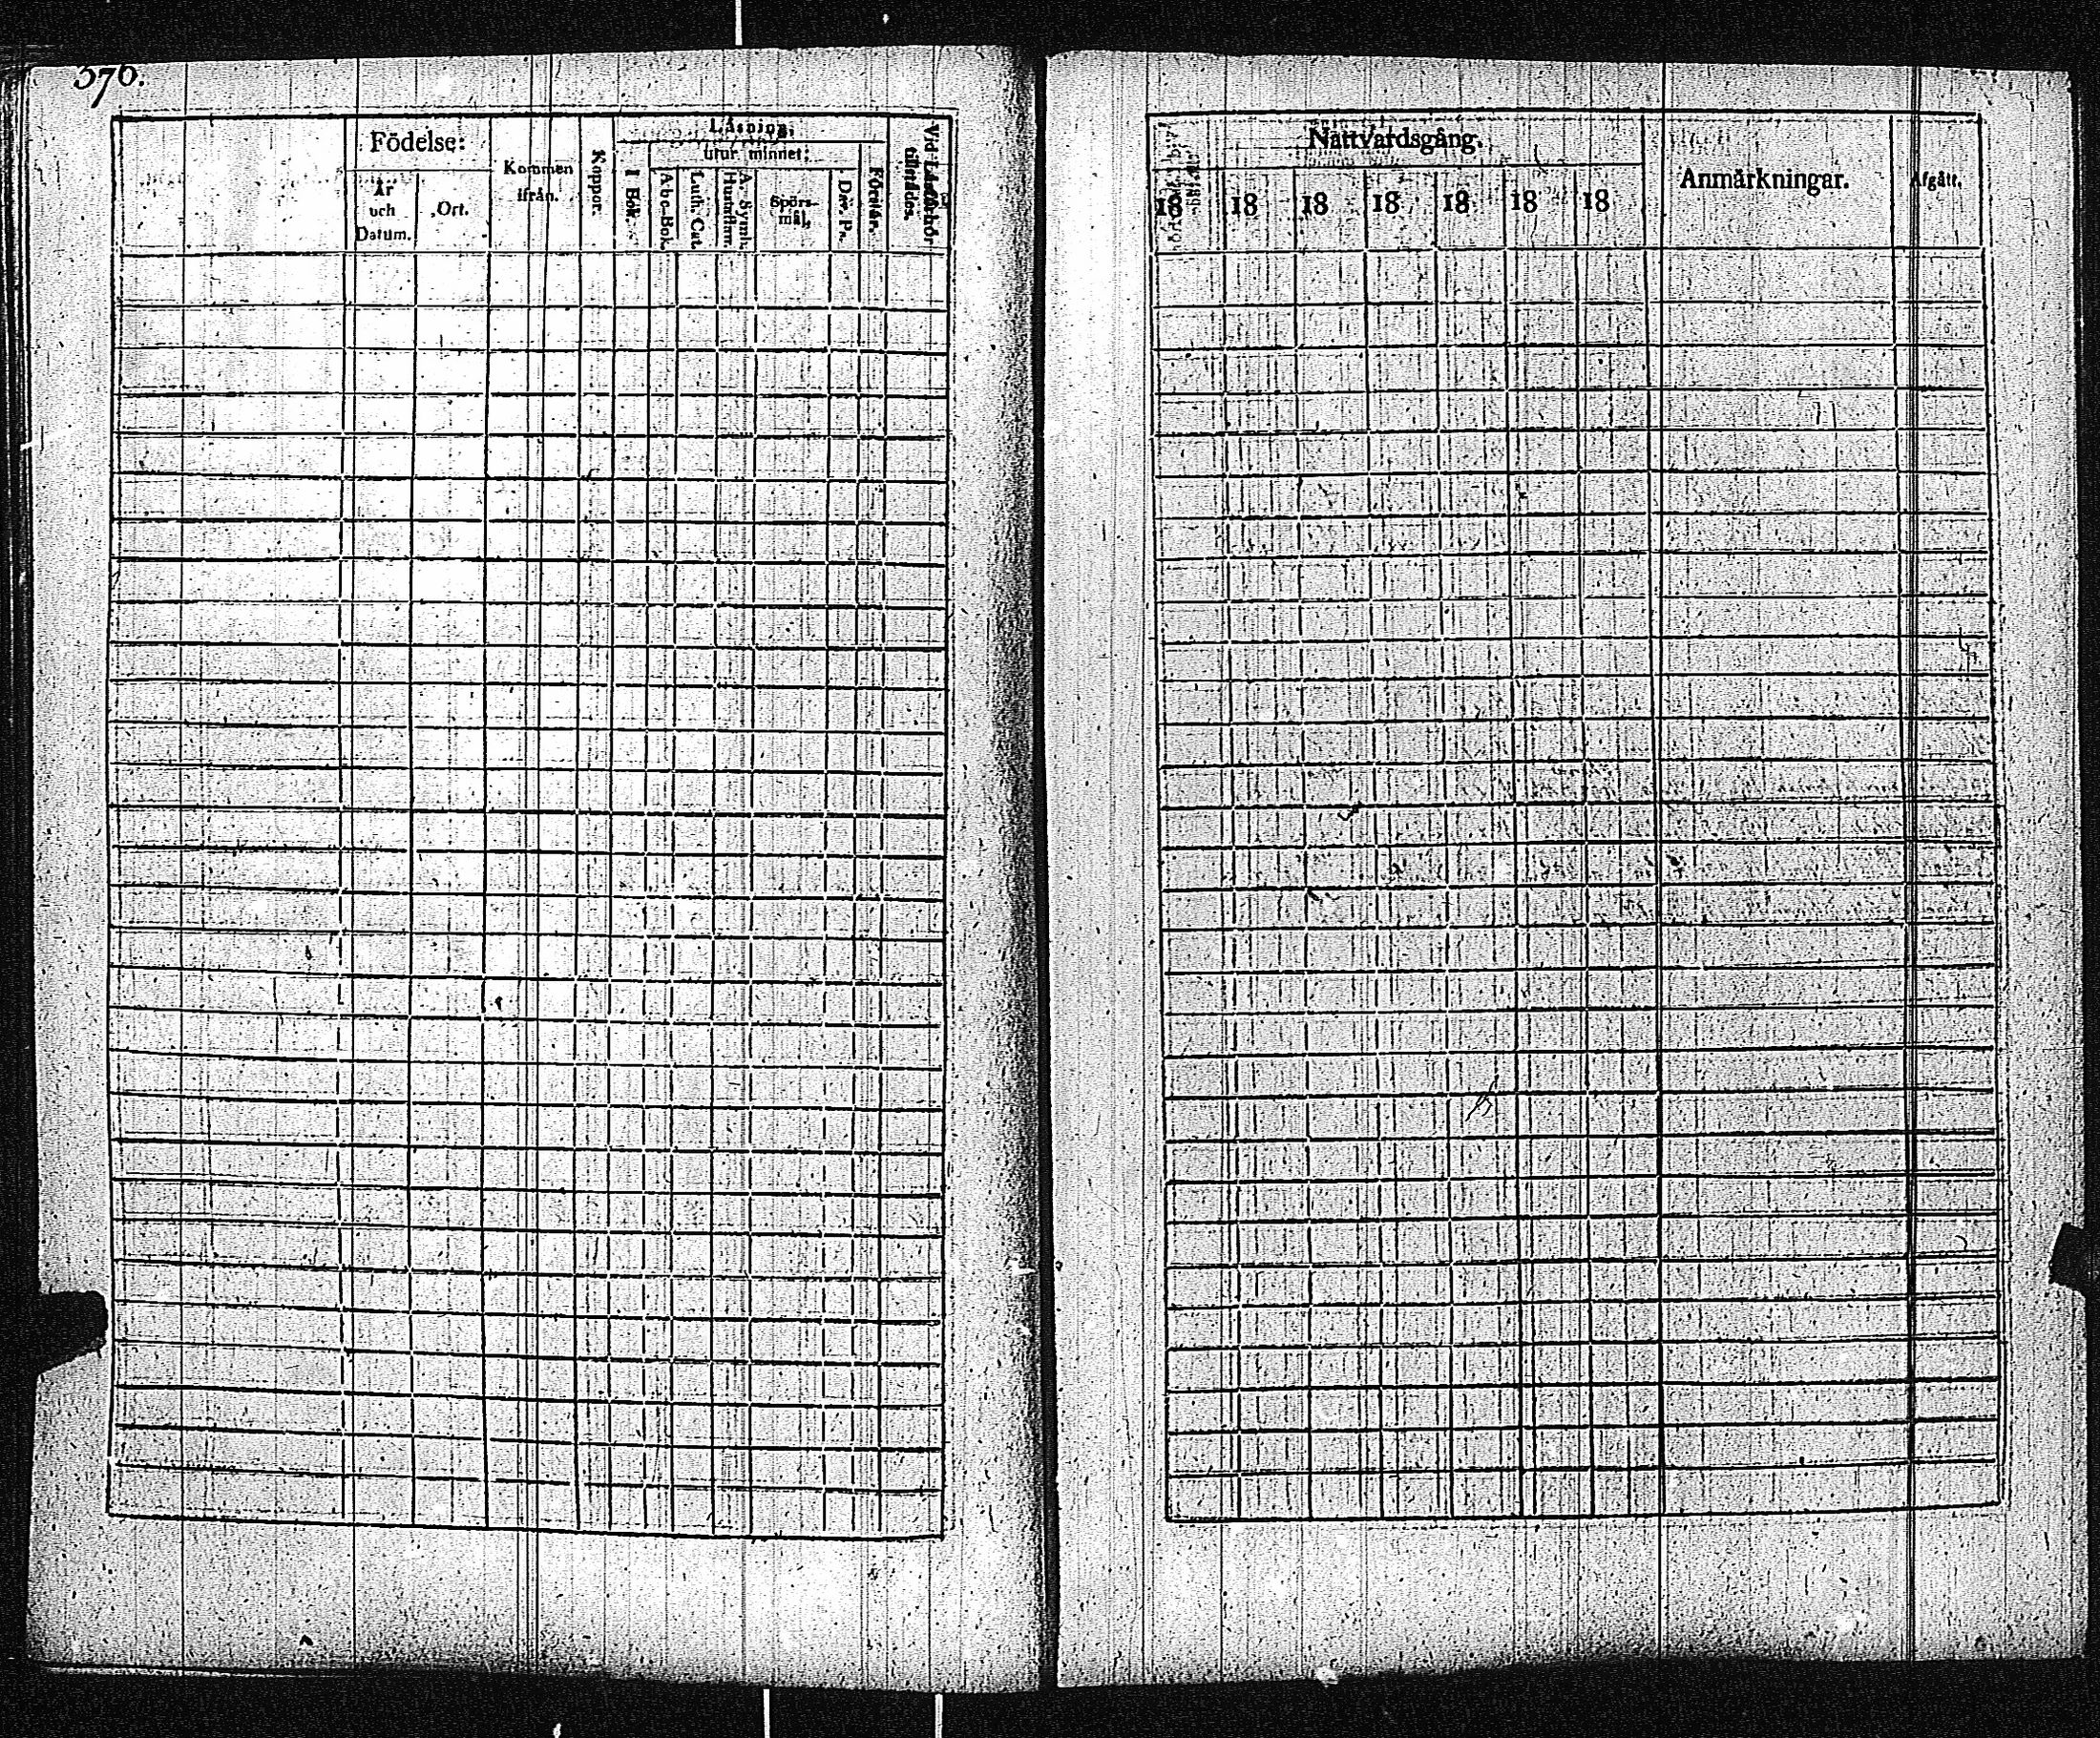 376.
Födelse:
År
och
Datum.
Ort.
Kommen
ifrån.
Koppor.
Läsning.
I Bok.
utur minnet:
Abc-Bok.
Luth. Cat.
A. Symb.
Hustaflan.
Spörs-
mål,
Dav. Ps.
Förstår.
Vid Läsförhör
tillstädes.
Nattvardsgång.
18 18 18 18 18 18 18
Anmärkningar.
Afgått.